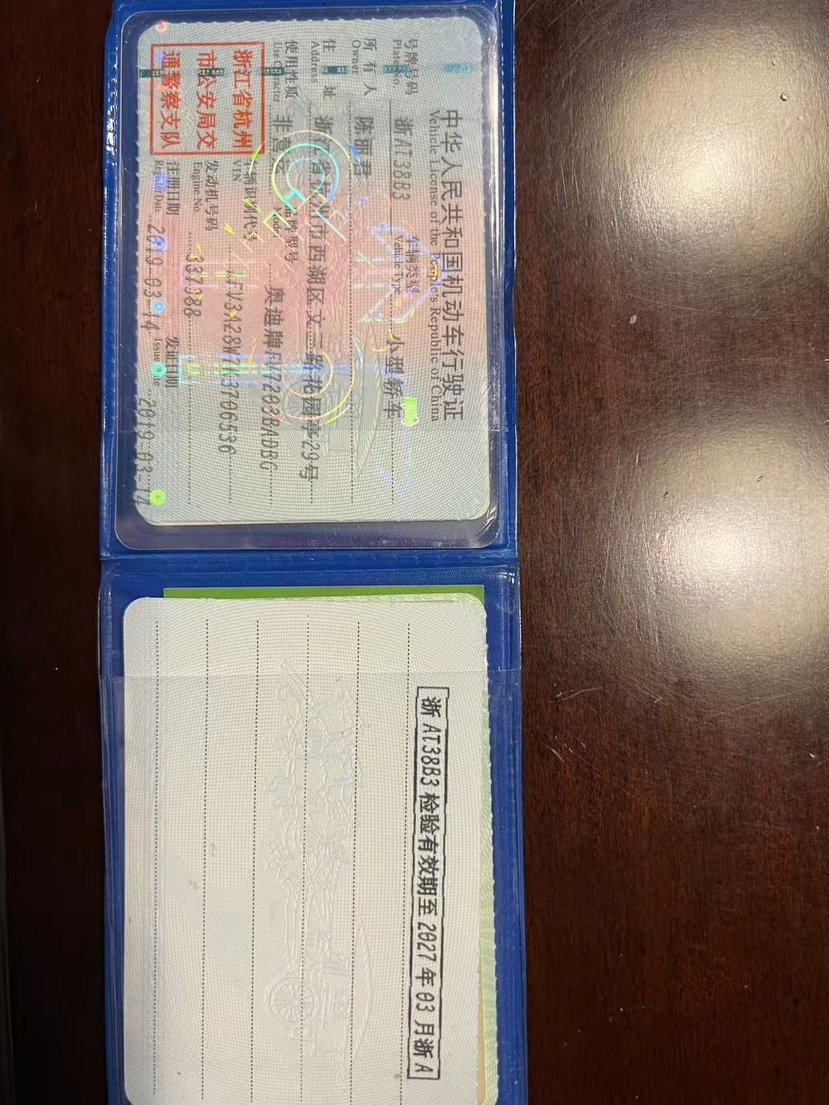 中华人民共和国机动车行驶证
Vehicle License of the People's Republic of China
号牌号码 浙AT38B3 车辆类型 小型轿车
Plate No. Vehicle Type
所有人 陈丽君
Owner
住址 浙江省杭州市西湖区文三路花园亭29号
Address
使用性质 非营 品牌型号 奥迪牌FV7203BADBG
Use Character
浙江省杭州
市公安局交
通警察支队
车辆识别代号
VIN
发动机号码 337988
Engine No.
注册日期 2019-03-14 发证日期 2019-03-14
Register Date Issue Date
浙AT38B3检验有效期至2027年03月浙A